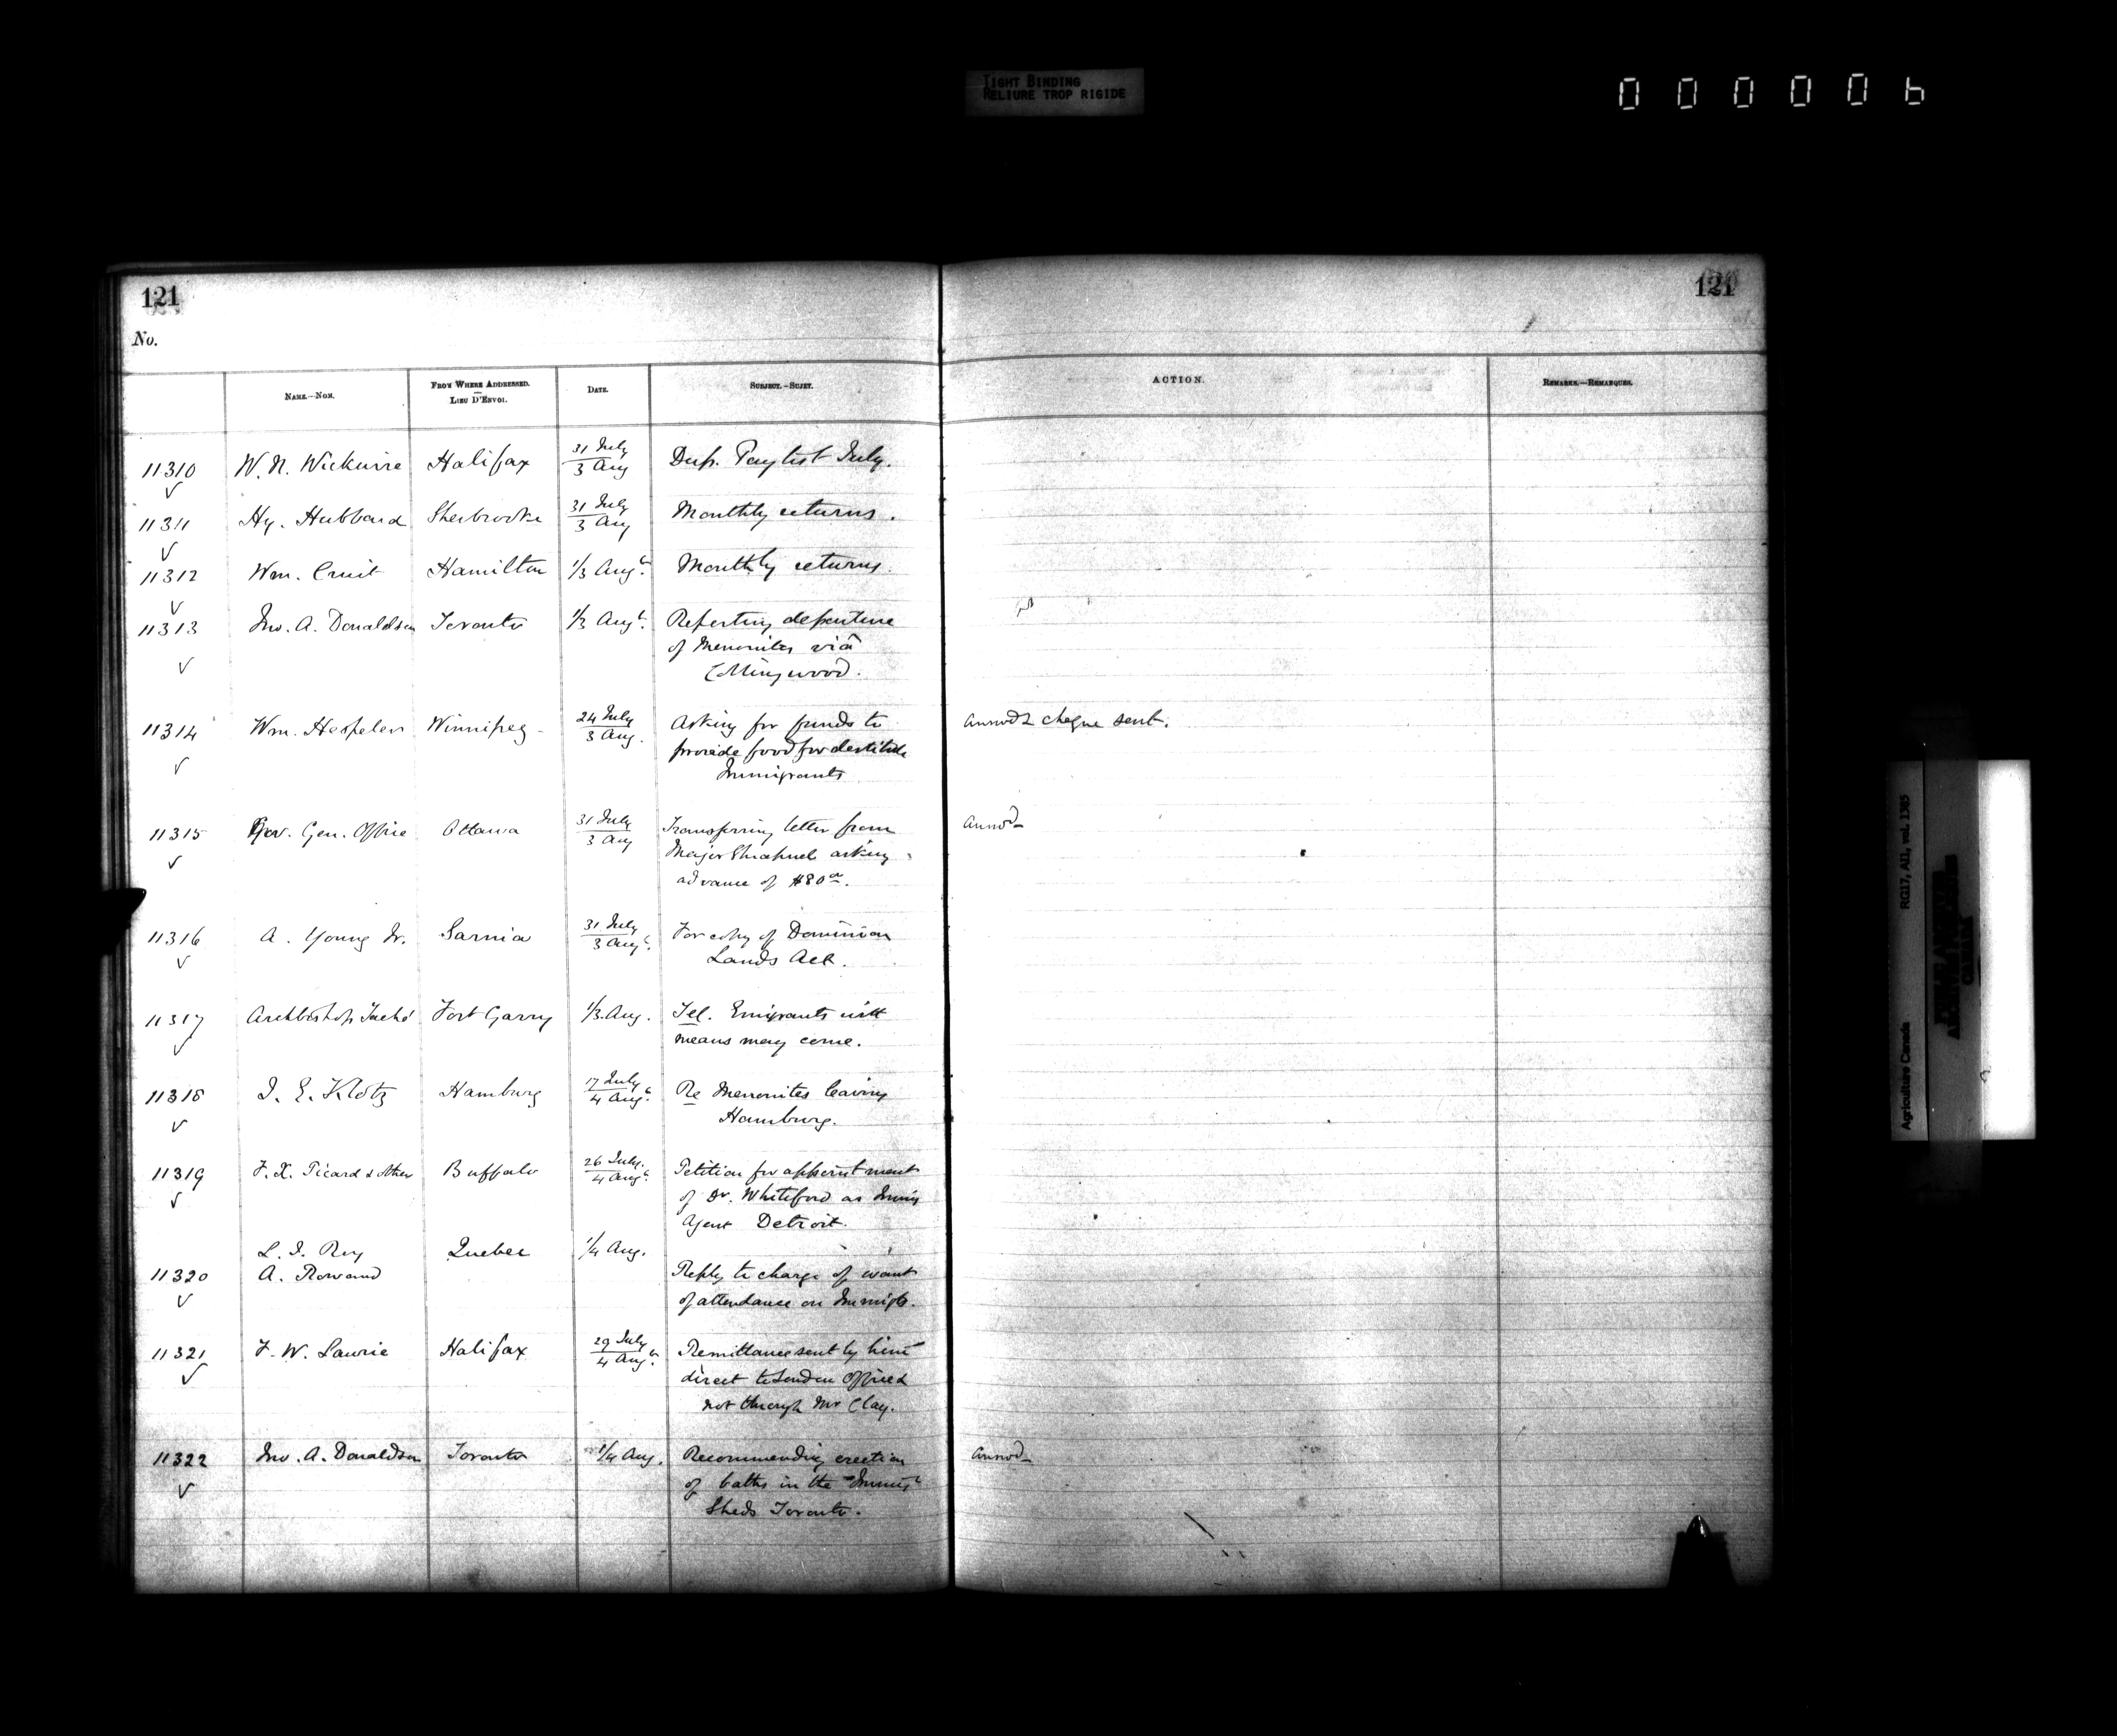 TIGHT BINDING
RELIURE TROP RIGIDE
000006
121
121
No.
NAME.—NOM.
FROM WHERE ADDRESSED.
LIEU D'ENVOI.
DATE.
SUBJECT.—SUJET.
ACTION.
REMARKS.—REMARQUES.
11310 W. N. Wickwire Halifax 31 July 3 Aug Dup. Paylist July.
11311 Hy. Hubbard Sherbrooke 31 July 3 Aug Monthly returns.
11312 Wm. Hamilton 1/3 Augt. Monthly returns.
11313 Jno. A. Donaldson Toronto 1/3 Augt. Reporting departure
of Menonites viâ
Collingwood.
11314 Wm. Hespeler Winnipeg 24 July 3 Aug. Asking for funds to answd & cheque sent.
provide food for destitute
Immigrants
11315 Gov. Gen. Office Ottawa 31 July 3 Aug Transferring letter from answd
Major asking
advance of $80.
11316 A. Young Jr. Sarnia 31 July 3 Augt. For copy of Dominion
Lands Act.
11317 Archbishop Taché Fort Garry 1/3 Aug. Tel. Emigrants with
means may come.
11318 J. E. Klotz Hamburg 17 July 4 Augt. Re Menonites leaving
Hamburg.
11319 F. X. Picard & other Buffalo 26 July. 4 Augt. Petition for appointment
of Dr. Whiteford as Immig
Agent Detroit.
L. J. Roy Quebec 1/4 Aug.
11320 A. Rowand Reply to charge of want
of attendance on Immigts.
11321 J. W. Laurie Halifax 29 July 4 Augt. Remittance sent by him
direct to London Office &
not through Mr Clay.
11322 Jno. A. Donaldson Toronto 1/4 Aug. Recommending erection answd
of baths in the Immigt
Sheds Toronto.
Agriculture Canada RG17, AII, vol. 1385